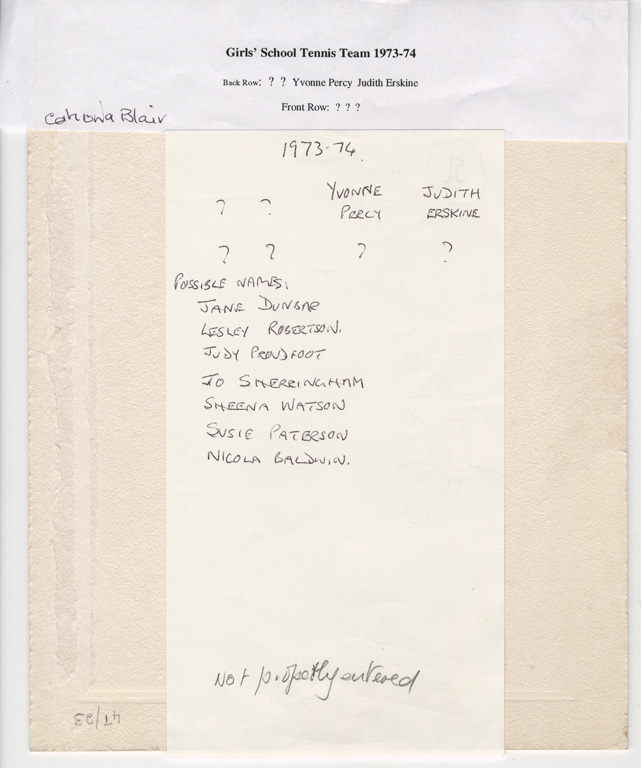 Girls' School Tennis Team 1973-74
Back Row: ? ? Yvonne Percy Judith Erskine
Front Row: ? ? ?
Catriona Blair
1973-74.
? ? YVONNE PERCY JUDITH ERSKINE
? ? ? ?
POSSIBLE NAMES:
JANE DUNBAR
LESLEY ROBERTSON.
JUDY PROUDFOOT
JO SHERRINGHAM
SHEENA WATSON
SUSIE PATERSON
NICOLA BALDWIN.
Not properly entered